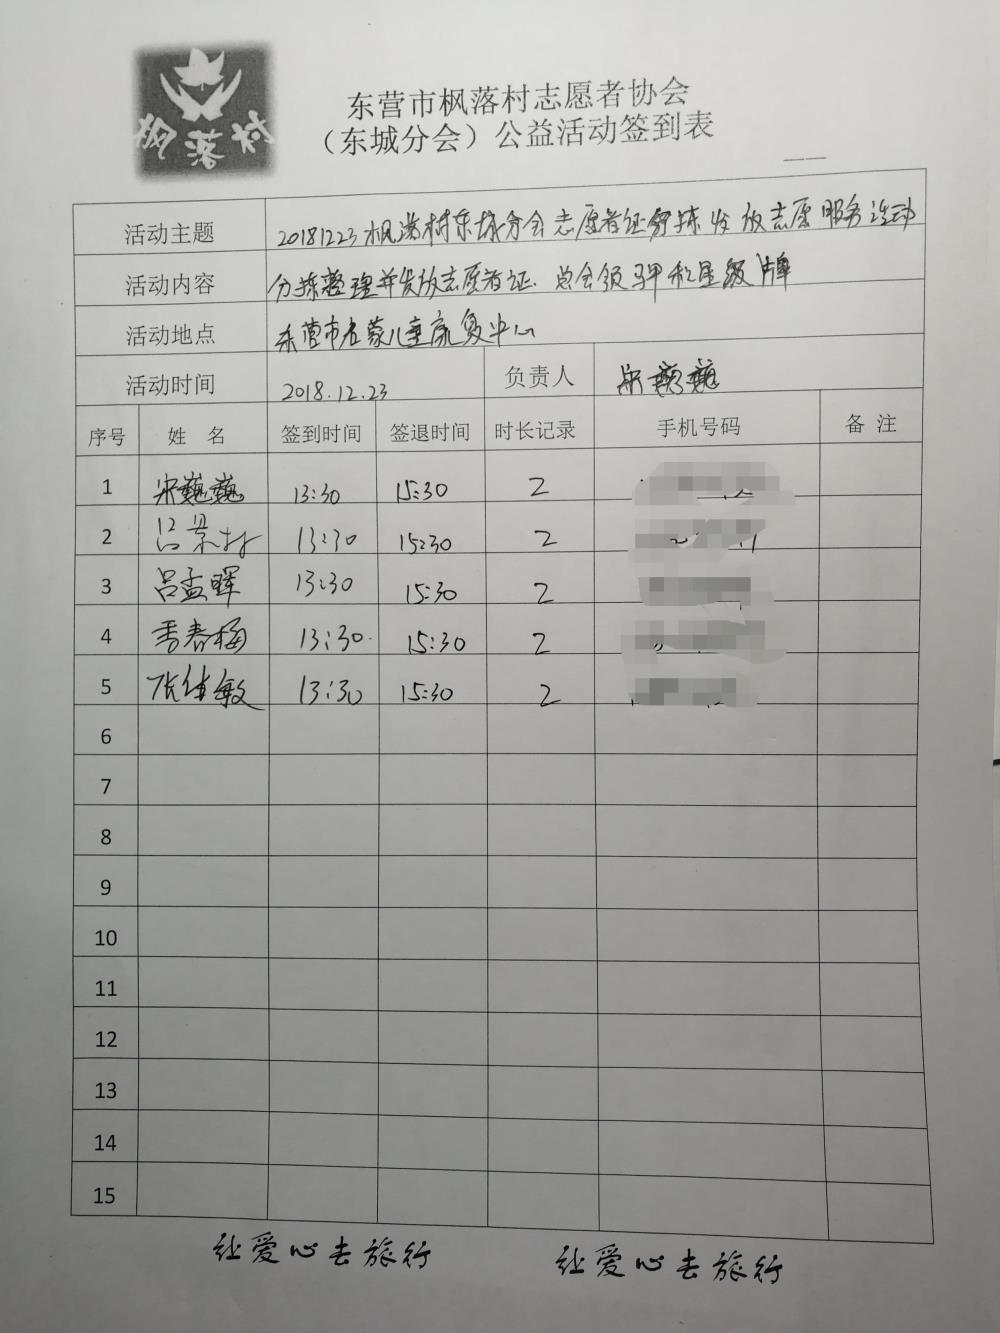 枫落村
东营市枫落村志愿者协会
（东城分会）公益活动签到表
活动主题 20181223枫落村东城分会志愿者证分拣发放志愿服务活动
活动内容 分拣整理并发放志愿者证.总会领 和星级牌
活动地点 东营市启蒙儿童康复中心
活动时间 2018.12.23 负责人 宋巍巍
序号 姓 名 签到时间 签退时间 时长记录 手机号码 备 注
1 宋巍巍 13:30 15:30 2
2 吕景 13:30 15:30 2
3 吕孟晖 13:30 15:30 2
4 春梅 13:30 15:30 2
5 张 敏 13:30 15:30 2
6
7
8
9
10
11
12
13
14
15
让爱心去旅行 让爱心去旅行